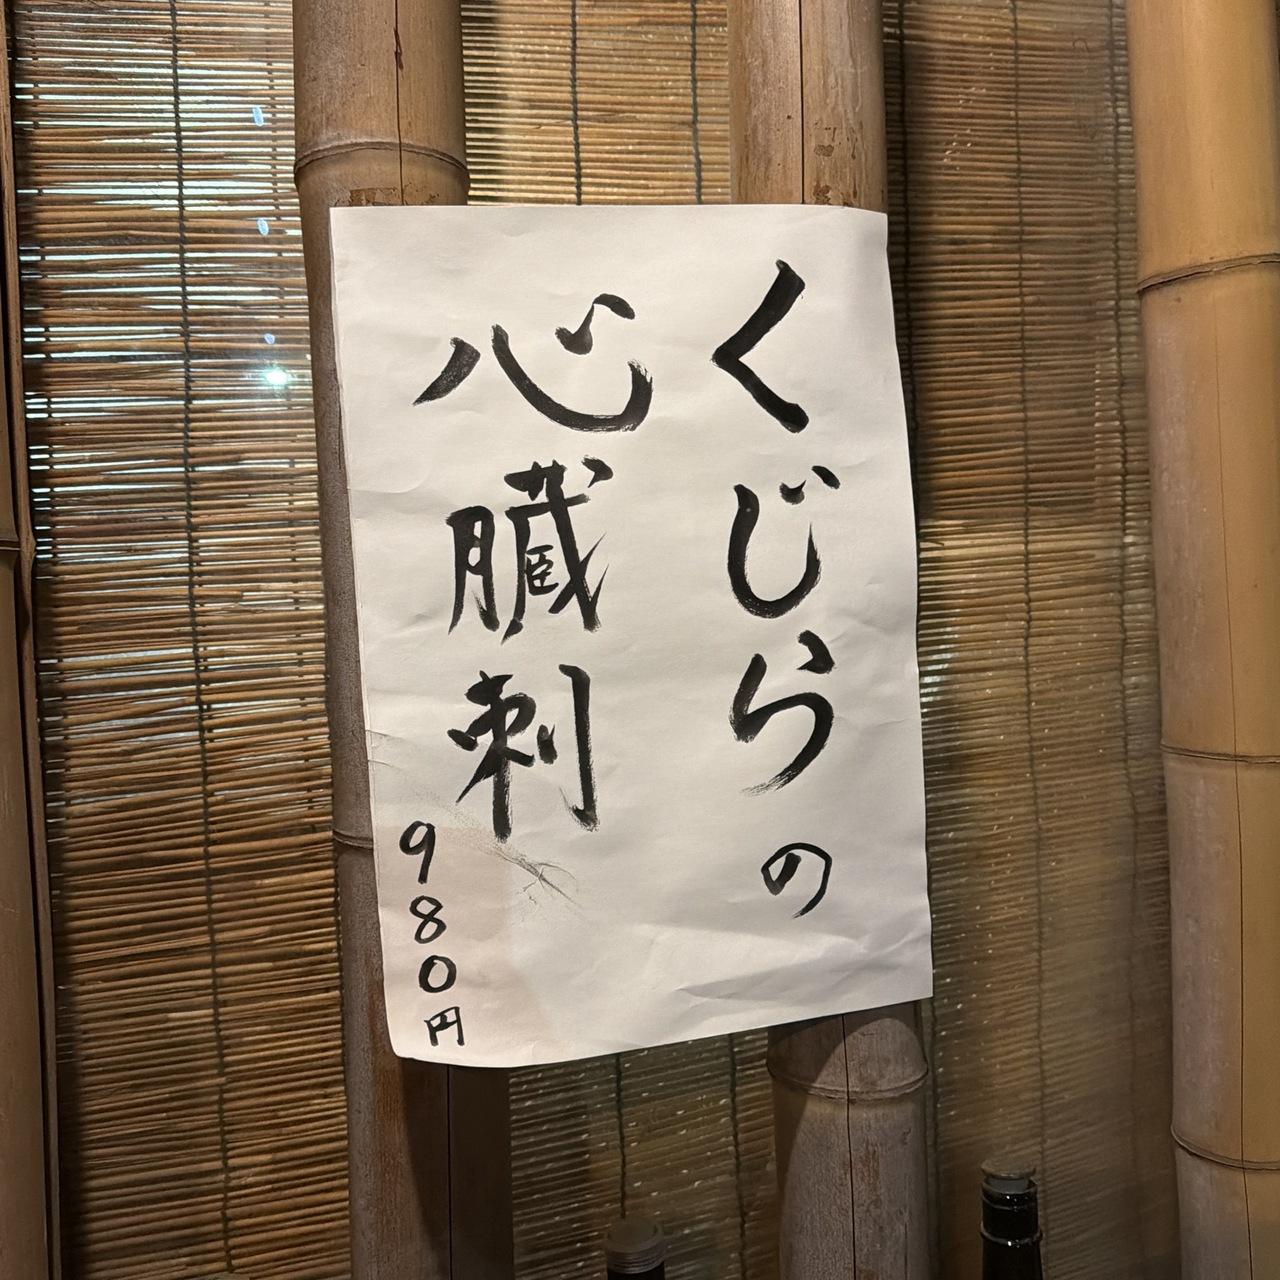 くじらの
心臓刺
980円